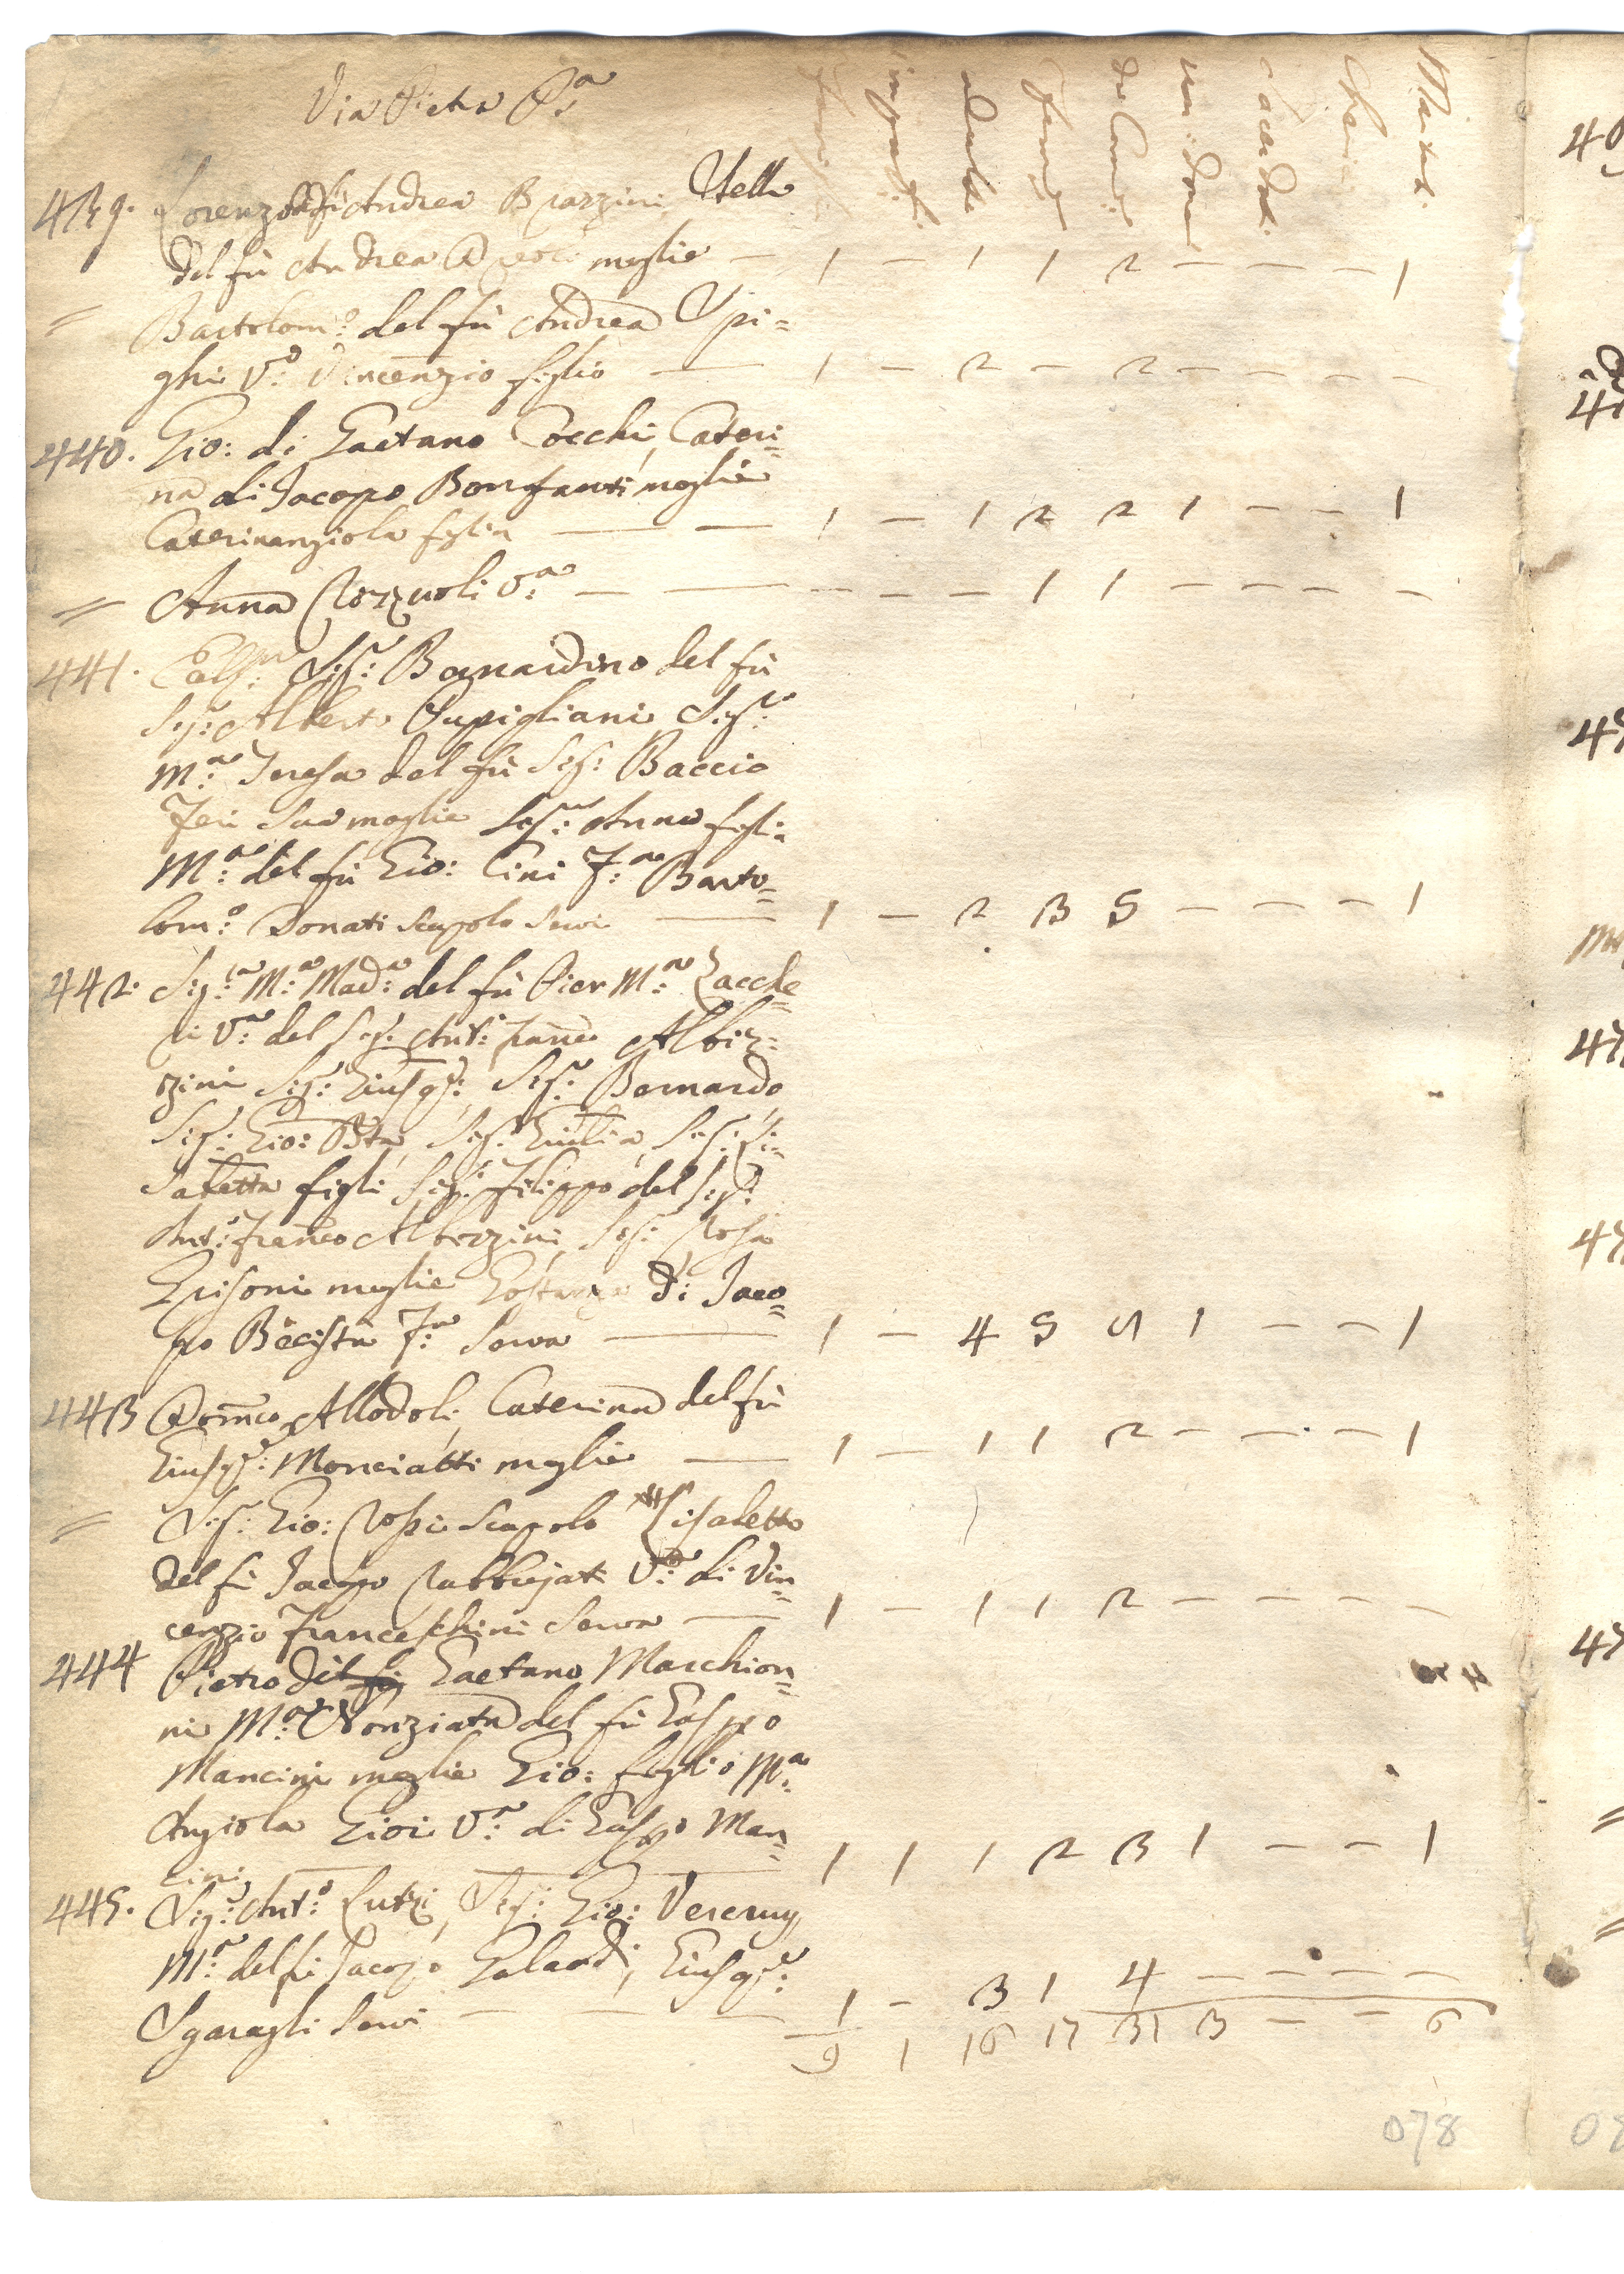 Via Pietra P:a
Famig:
impub:
adulti
Femi:
da Com:
non do Com
Sacerdoti
Cherici
Maritati
439. Lorenzo del fù Andrea Brazzini, Stella
del fù Andrea moglie — 1 — 1 1 2 — — — 1
= Bartolom:o del fù Andrea Spi=
ghi V:o Vincenzio figlio — 1 — 2 — 2 — — — —
440. Gio: di Gaetano Cecchi, Cateri=
na di Jacopo Bonfanti moglie
Caterinangiola figlia — — 1 — 1 2 2 1 — — 1
= Anna Rozzuoli V:a — — — — — 1 1 — — — —
441. Sig:r Bernardino del fù
Sig:r Alberto Pupigliani Sig:ra
M:a Teresa del fù Sig: Baccio
Feri sua moglie Sig:ra Anna figlia
M:a del fù Gio: Cini F:a Barto=
lom:o Donati scapolo servi — 1 — 2 3 5 — — — 1
442. Sig:ra M:a Mad:a del fù Pier M:a Zacche
ri V:a del Sig: Ant:o Franc:o Albiz=
zini Sig: Giusep:e, Sig:r Bernardo
Sig:r Gio: Bta, Sig:a Giulia, Sig:a Li=
sabetta figli Sig:r Filippo del Sig:r
Ant:o Franco Albizzini, Sig:a Rosa
Grisoni moglie Costanza di Jaco=
po F:a Serva — 1 — 4 5 9 1 — — 1
443 Dom:co Allodoli, Caterina del fù
Giusep:e Monciatti moglie — 1 — 1 1 2 — — — 1
= Sig:r Gio: Rossi scapolo Lisabetta
del fù Jacopo Rabbujati V:a di Vin=
cenzio Franceschini Serva — 1 — 1 1 2 — — — —
444 Pietro del fù Gaetano Marchion=
ni M:a Nonziata del fù Gaspero
Mancini moglie Gio: figlio M:a
Angiola Giori V:a di Gaspero Man=
cini — 1 1 1 2 3 1 — — 1
445. Sig:r Ant:o Lutzi, Sig:r Gio:
M:a del fù Jacopo Galardi, Giusep:e
Sgaragli Servi — — — 1 — 3 1 4 — — — —
9 1 16 17 31 3 — — 6
078